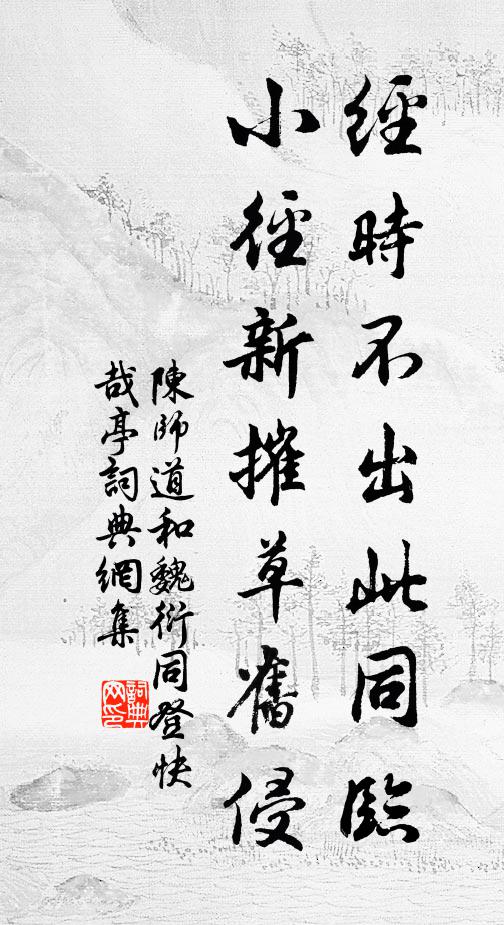 經時不出此同臨
小徑新摧草舊侵
陳師道和魏衍同登快
哉亭詞典網集
詞典網印